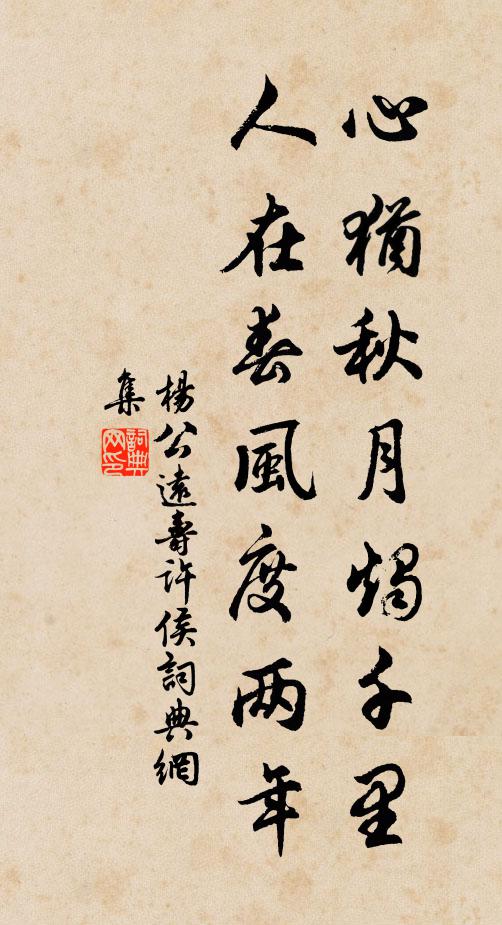 心猶秋月燭千里
人在春風度两年
楊公遠壽許侯詞典網
集
詞典
网印